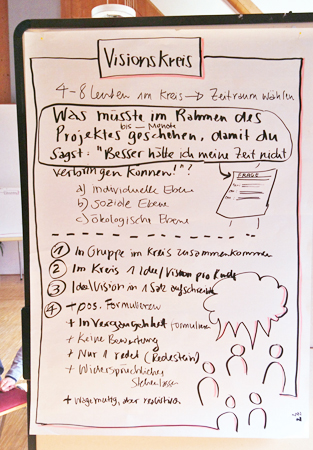 Visionskreis
4-8 Leuten im Kreis → Zeitraum wählen
Was müsste im Rahmen des
bis Monate
Projektes geschehen, damit du
sagst: "Besser hätte ich meine Zeit nicht
verbringen können!"?
FRAGE
a) individuelle Ebene
b) soziale Ebene
c) ökologische Ebene
① In Gruppe im Kreis zusammenkommen
② Im Kreis 1 Idee/Vision pro Runde
③ Idee/Vision in 1 Satz aufschreiben
④ + pos. Formulieren
+ In Vergangenheit formulieren
+ Keine Bewertung
+ Nur 1 redet (Redestein)
+ Widersprüchliches
stehen lassen
+ wagemutig, aber realistisch